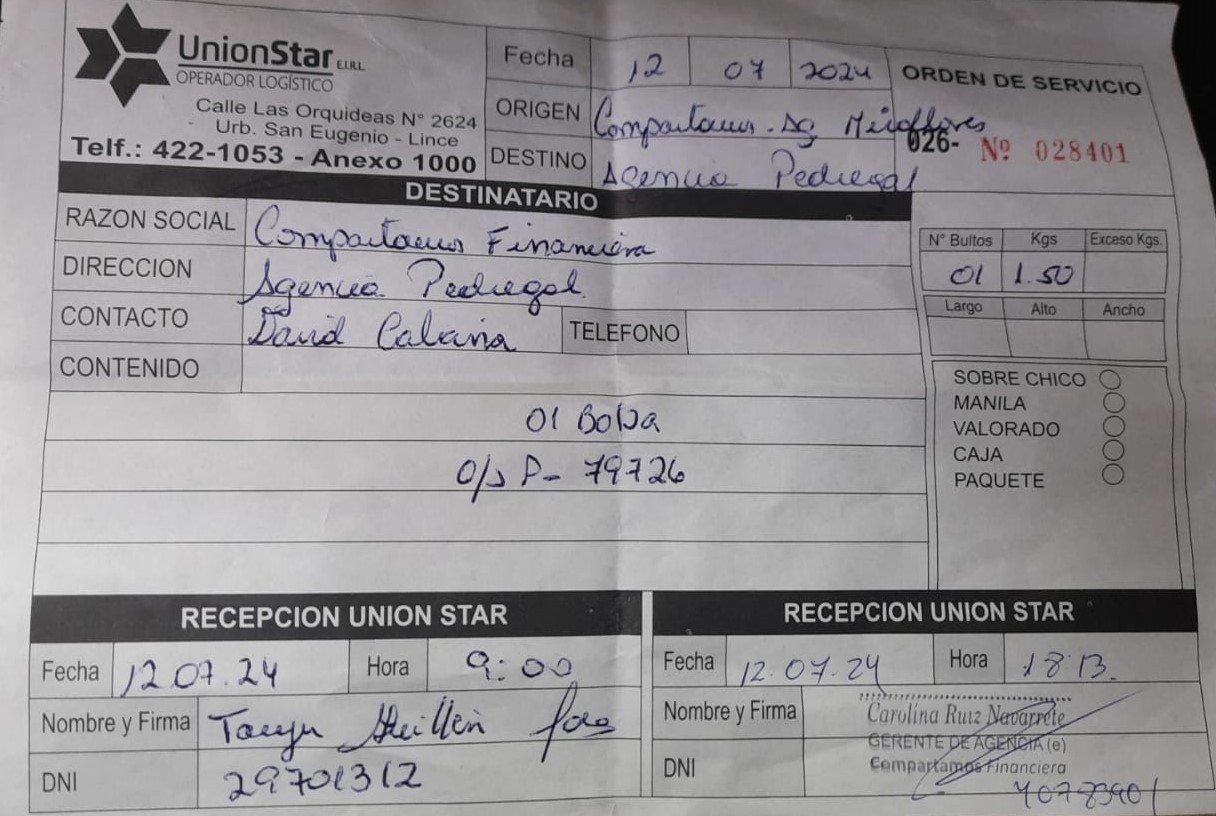 UnionStar E.I.R.L.
OPERADOR LOGÍSTICO
Calle Las Orquideas N° 2624
Urb. San Eugenio - Lince
Telf.: 422-1053 - Anexo 1000
Fecha 12 07 2024
ORIGEN Compartamos - Ag Miraflores
DESTINO Agencia Pedregal
ORDEN DE SERVICIO
026- Nº 028401
DESTINATARIO
RAZON SOCIAL Compartamos Financiera
DIRECCION Agencia Pedregal
CONTACTO David TELEFONO
CONTENIDO
01 Bolsa
O/S P- 79726
N° Bultos Kgs Exceso Kgs.
01 1.50
Largo Alto Ancho
SOBRE CHICO
MANILA
VALORADO
CAJA
PAQUETE
RECEPCION UNION STAR
Fecha 12.07.24 Hora 9:00
Nombre y Firma
DNI 29701312
RECEPCION UNION STAR
Fecha 12.07.24 Hora 18:13
Nombre y Firma Carolina Ruiz Navarrete
GERENTE DE AGENCIA (e)
Compartamos Financiera
DNI